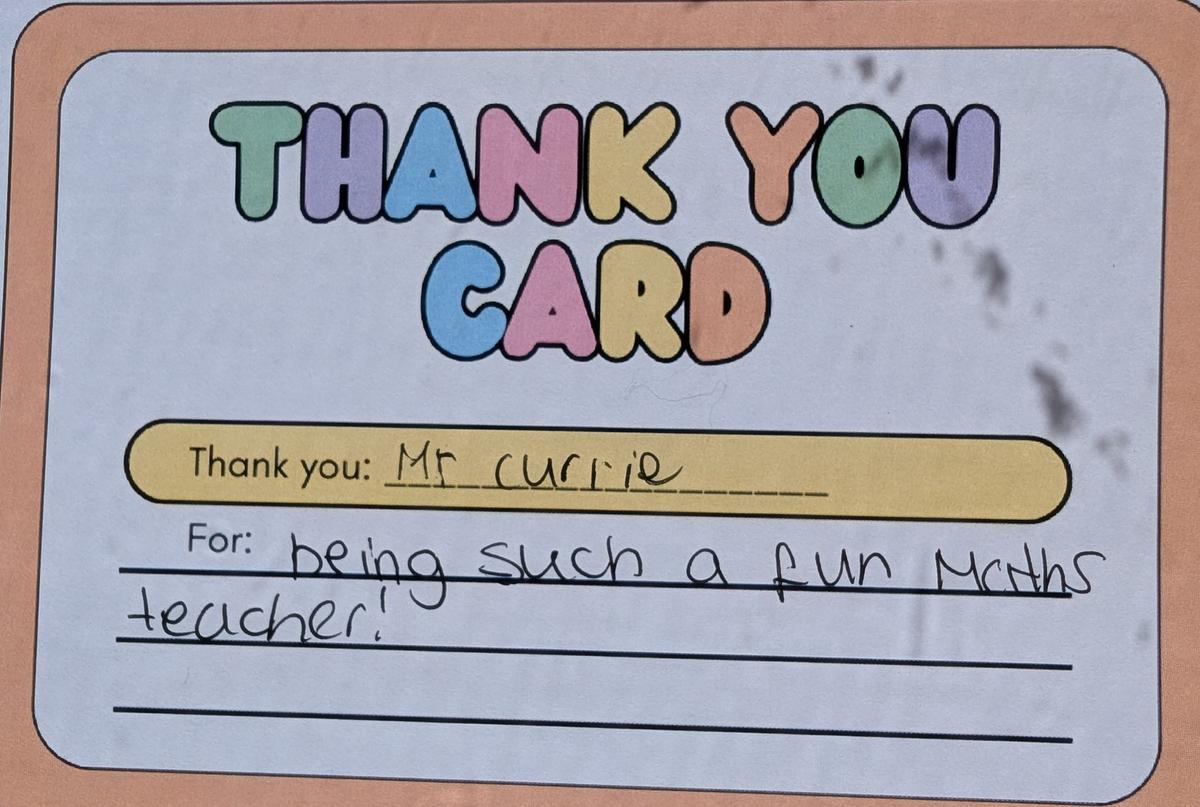 THANK YOU
CARD
Thank you: Mr currie
For: being such a fun Maths
teacher!